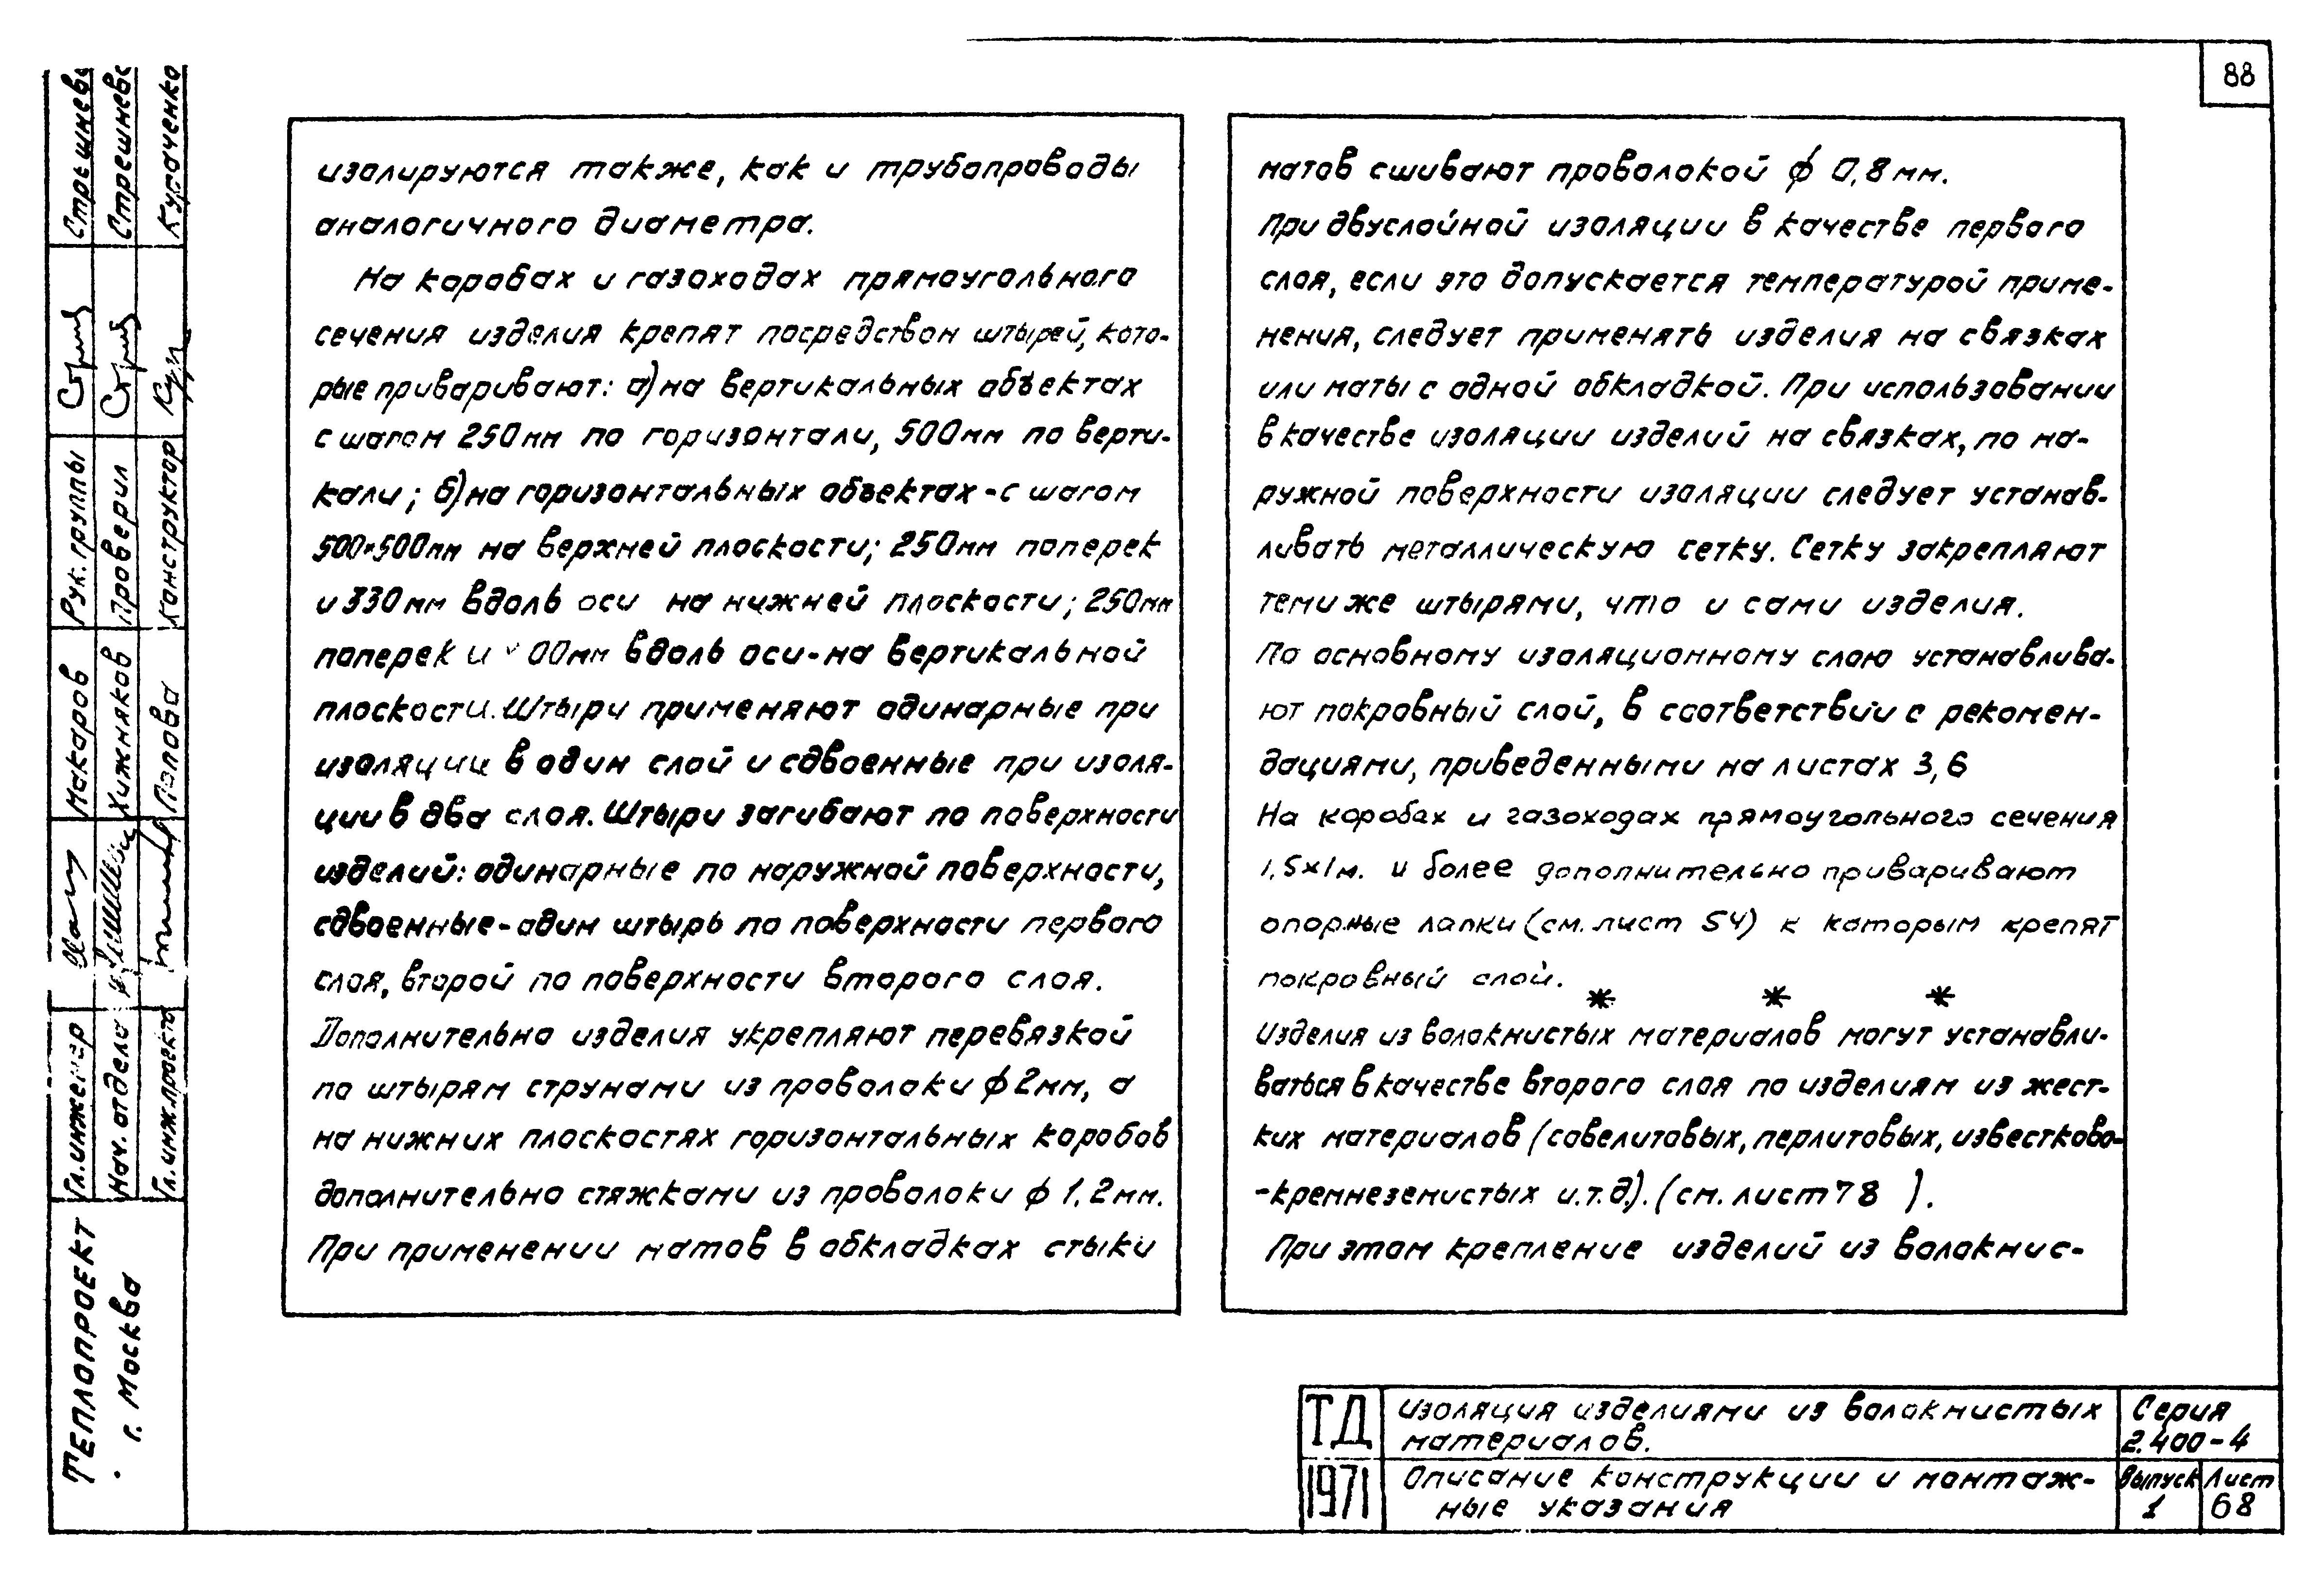 88
изолируются также, как и трубопроводы
аналогичного диаметра.
На коробах и газоходах прямоугольного
сечения изделия крепят посредством штырей, кото-
рые приваривают: а) на вертикальных объектах
с шагом 250мм по горизонтали, 500мм по верти-
кали; б) на горизонтальных объектах - с шагом
500×500мм на верхней плоскости; 250мм поперек
и 330мм вдоль оси на нижней плоскости; 250мм
поперек и 00мм вдоль оси - на вертикальной
плоскости. Штыри применяют одинарные при
изоляции в один слой и сдвоенные при изоля-
ции в два слоя. Штыри загибают по поверхности
изделий: одинарные по наружной поверхности,
сдвоенные - один штырь по поверхности первого
слоя, второй по поверхности второго слоя.
Дополнительно изделия укрепляют перевязкой
по штырям струнами из проволоки ϕ 2мм, а
на нижних плоскостях горизонтальных коробов
дополнительно стяжками из проволоки ϕ 1,2мм.
При применении матов в обкладках стыки
матов сшивают проволокой ϕ 0,8мм.
При двуслойной изоляции в качестве первого
слоя, если это допускается температурой приме-
нения, следует применять изделия на связках
или маты с одной обкладкой. При использовании
в качестве изоляции изделий на связках, по на-
ружной поверхности изоляции следует устанав-
ливать металлическую сетку. Сетку закрепляют
теми же штырями, что и сами изделия.
По основному изоляционному слою устанавлива-
ют покровный слой, в соответствии с рекомен-
дациями, приведенными на листах 3,6
На коробах и газоходах прямоугольного сечения
1,5×1м. и более дополнительно приваривают
опорные лапки (см. лист 54) к которым крепят
покровный слой.
* * *
Изделия из волокнистых материалов могут устанавли-
ваться в качестве второго слоя по изделиям из жест-
ких материалов (совелитовых, перлитовых, известково-
-кремнеземистых и.т.д.). (см. лист 78 ).
При этом крепление изделий из волокнис-
ТД
1971
Изоляция изделиями из волокнистых
материалов.
Описание конструкции и монтаж-
ные указания
Серия
2.400-4
Выпуск
1
Лист
68
Теплопроект
г. Москва
Гл. инженер
Макаров
Рук. группы
Стрешнева
Нач. отдела
Хижняков
Проверил
Стрешнева
Гл. инж. проекта
Попова
Конструктор